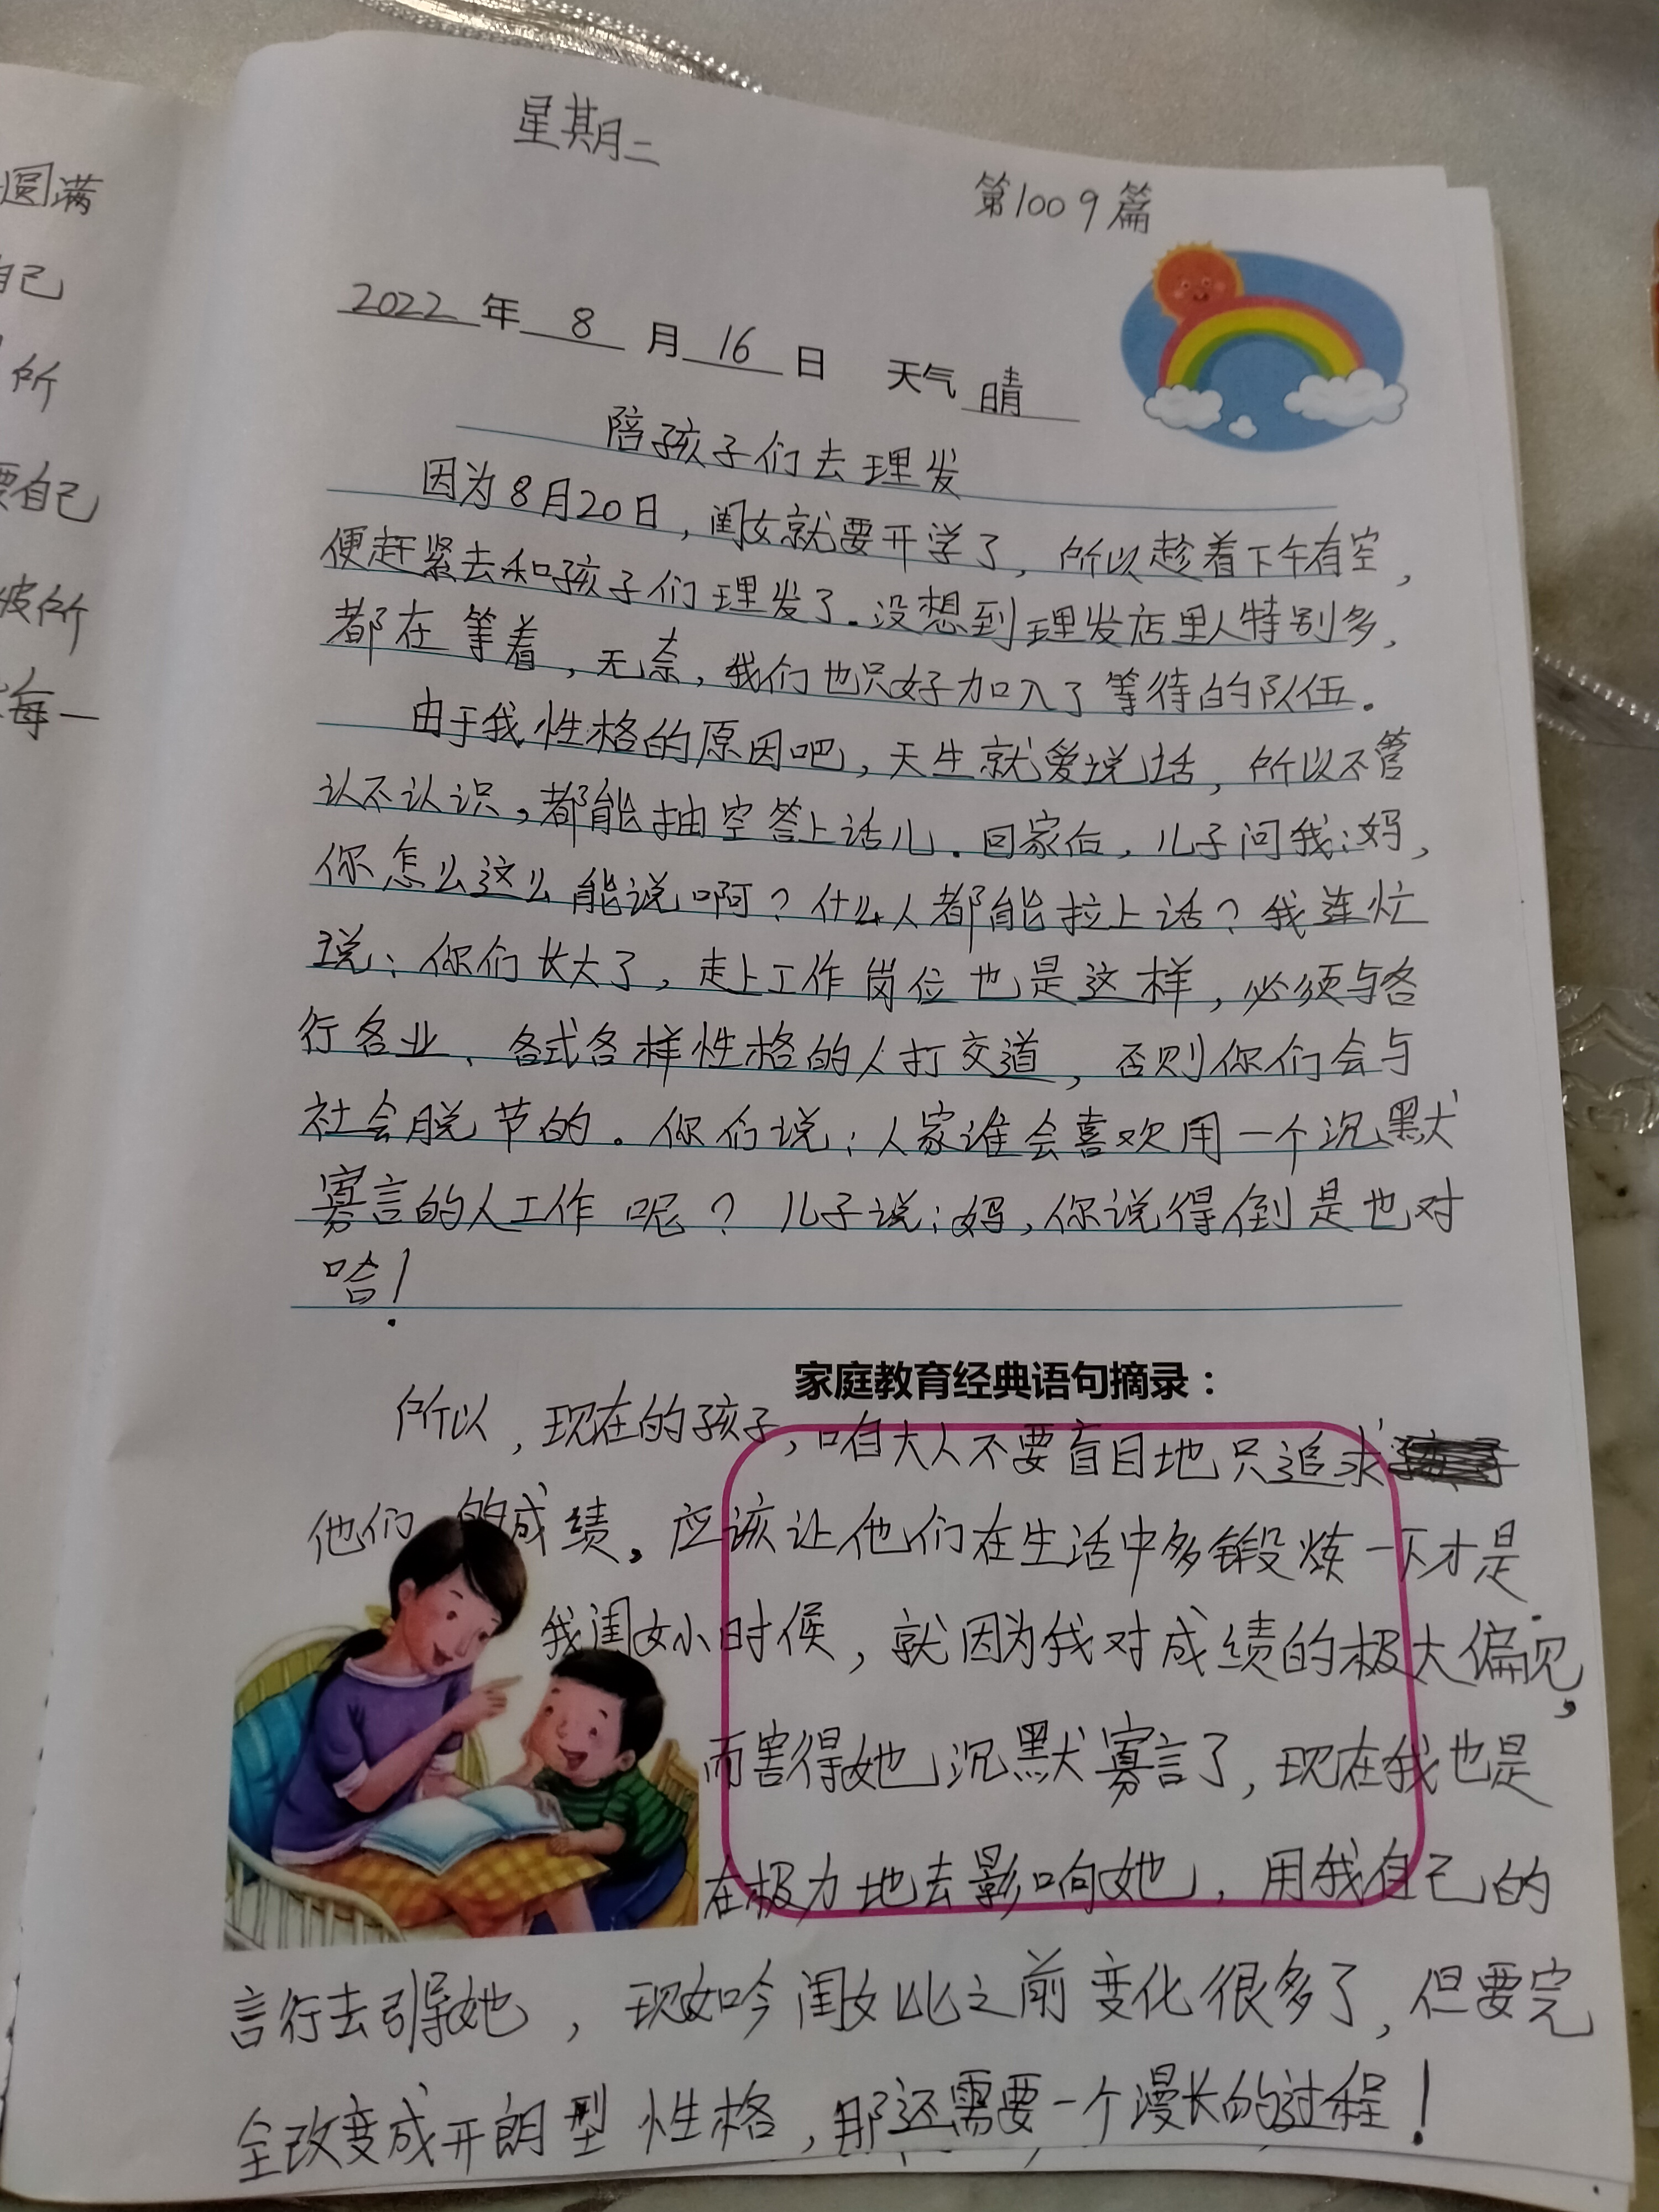 星期二
第1009篇
2022年8月16日 天气晴
陪孩子们去理发
因为8月20日，闺女就要开学了，所以趁着下午有空，
便赶紧去和孩子们理发了．没想到理发店里人特别多，
都在等着，无奈，我们也只好加入了等待的队伍．
由于我性格的原因吧，天生就爱说话，所以不管
认不认识，都能抽空答上话儿．回家后，儿子问我：妈，
你怎么这么能说啊？什么人都能拉上话？我连忙
说：你们长大了，走上工作岗位也是这样，必须与各
行各业、各式各样性格的人打交道，否则你们会与
社会脱节的。你们说：人家谁会喜欢用一个沉默
寡言的人工作呢？儿子说：妈，你说得倒是也对
哈！
家庭教育经典语句摘录：
所以，现在的孩子，咱大人不要盲目地只追求
他们的成绩。应该让他们在生活中多锻炼一下才是．
我闺女小时候，就因为我对成绩的极大偏见，
而害得她沉默寡言了，现在我也是
在极力地去影响她，用我自己的
言行去引导她，现如今闺女比之前变化很多了，但要完
全改变成开朗型性格，那还需要一个漫长的过程！
圆满
自己
所
要自己
彼所
每一